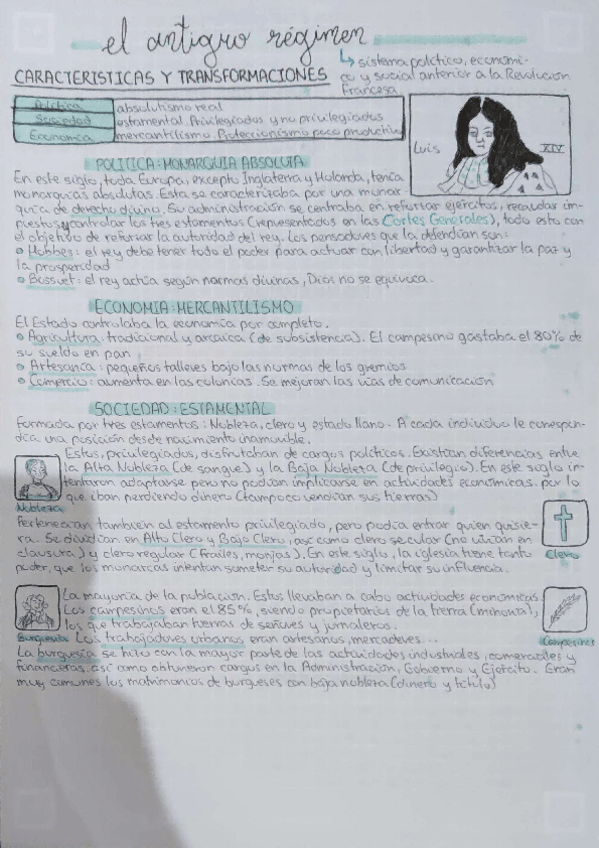 el antiguo régimen
↳ sistema político, económi-
co y social anterior a la Revolución
francesa
CARACTERISTICAS Y TRANSFORMACIONES
Política absolutismo real
Sociedad estamental. Privilegiados y no privilegiados
Economía mercantilismo. Proteccionismo poco productivo
Luis XIV
POLITICA: MONARQUIA ABSOLUTA
En este siglo, toda Europa, excepto Inglaterra y Holanda, tenía
monarquías absolutas. Esta se caracterizaba por una monar
quía de derecho divino. Su administración se centraba en reforzar ejércitos, recaudar im-
puestos y controlar los tres estamentos (representados en las Cortes Generales), todo esto con
el objetivo de reforzar la autoridad del rey. Los pensadores que la defendían son:
• Hobbes: el rey debe tener todo el poder para actuar con libertad y garantizar la paz y
la prosperidad
• Bossuet: el rey actúa según normas divinas, Dios no se equivoca.
ECONOMIA: MERCANTILISMO
El Estado controlaba la economía por completo.
• Agricultura: tradicional y arcaica (de subsistencia). El campesino gastaba el 80% de
su sueldo en pan
• Artesanía: pequeños talleres bajo las normas de los gremios
• Comercio: aumenta en las colonias. Se mejoran las vías de comunicación
SOCIEDAD: ESTAMENTAL
Formada por tres estamentos: Nobleza, clero y estado llano. A cada individuo le correspon-
día una posición desde nacimiento inamovible.
Estos, privilegiados, disfrutaban de cargos políticos. Existían diferencias entre
la Alta Nobleza (de sangre) y la Baja Nobleza (de privilegio). En este siglo in-
tentaron adaptarse pero no podían implicarse en actividades económicas. por lo
que iban perdiendo dinero (tampoco vendían sus tierras)
Nobleza
Pertenecían también al estamento privilegiado, pero podía entrar quien quisie-
ra. Se dividían en Alto Clero y Bajo Clero, así como clero secular (no vivían en
clausura) y clero regular (frailes, monjas). En este siglo, la iglesia tiene tanto
poder, que los monarcas intentan someter su autoridad y limitar su influencia.
Clero
La mayoría de la población. Estos llevaban a cabo actividades económicas.
Los campesinos eran el 85%, siendo propietarios de la tierra (minoría),
los que trabajaban tierras de señores y jornaleros.
Burguesía Los trabajadores urbanos eran artesanos, mercaderes...
Campesinos
La burguesía se hizo con la mayor parte de las actividades industriales, comerciales y
financieras, así como obtuvieron cargos en la Administración, Gobierno y Ejército. Eran
muy comunes los matrimonios de burgueses con baja nobleza (dinero y título)